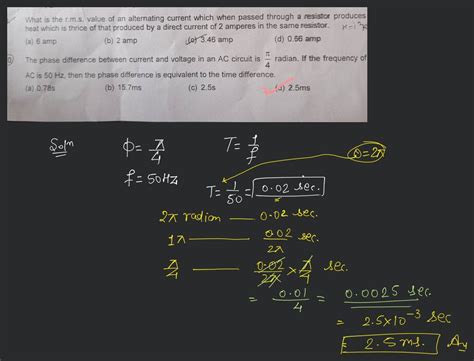 What is the r.m.s. value of an alternating current which when passed through a resistor produces
heat which is thrice of that produced by a direct current of 2 amperes in the same resistor.
(a) 6 amp (b) 2 amp (c) 3.46 amp (d) 0.56 amp
The phase difference between current and voltage in an AC circuit is π/4 radian. If the frequency of
AC is 50 Hz, then the phase difference is equivalent to the time difference.
(a) 0.78s (b) 15.7ms (c) 2.5s (d) 2.5ms
Soln ϕ = π/4 T = 1/f
f = 50HZ
T = 1/50 = 0.02 sec. ϕ = 2π
2π radion — 0.02 sec.
1π — 0.02/2π
π/4 — 0.02/2π × π/4 sec.
= 0.01/4 = 0.0025 sec.
= 2.5×10⁻³ sec
= 2.5 ms. Ay